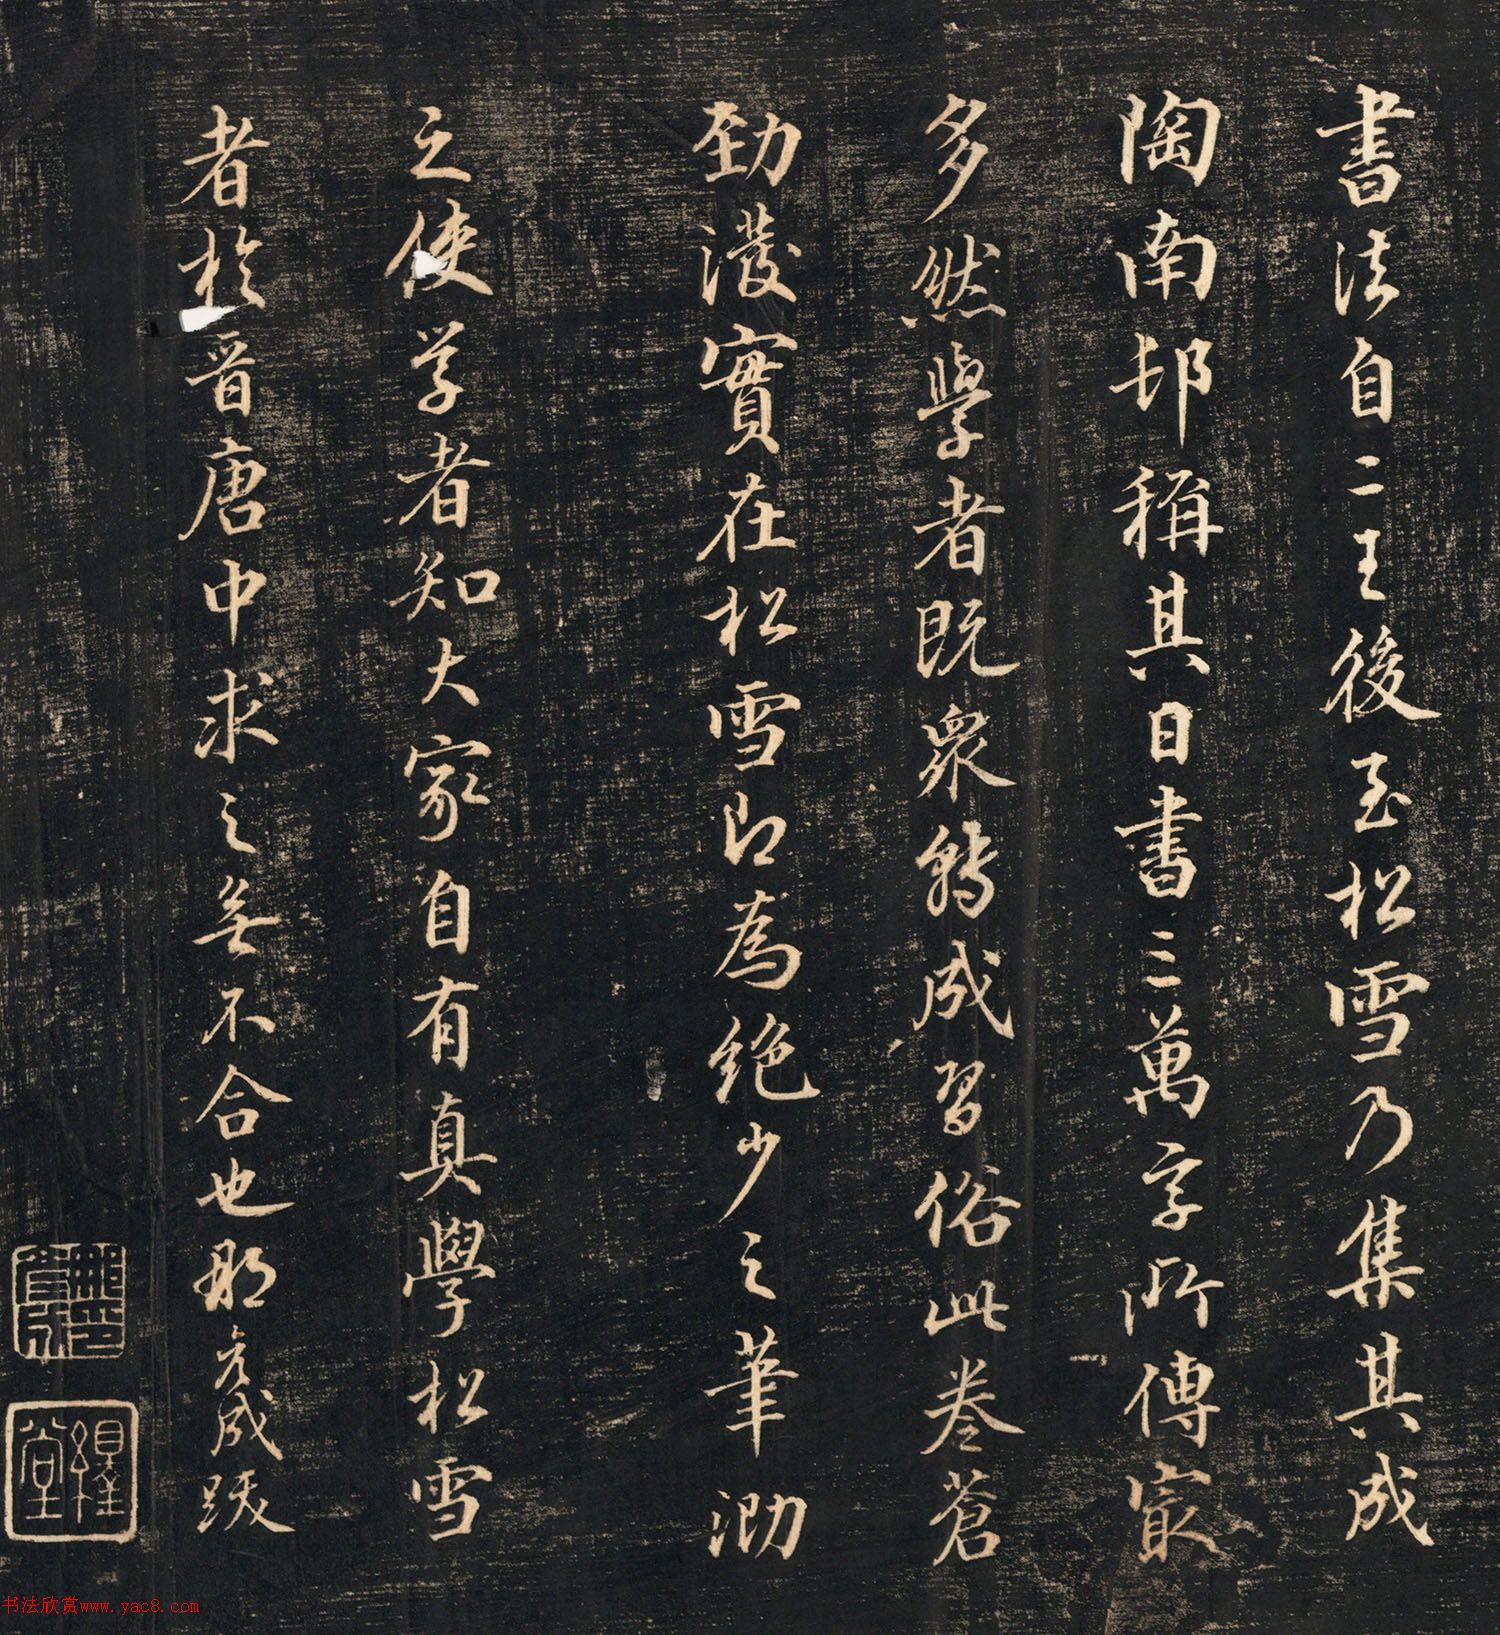 書法自二王後至松雪乃集其成
陶南邨稱其日書三萬字所傳寂
多然學者既衆轉成習俗此卷蒼
勁濃實在松雪即為絶少之筆泐
之使学者知大家自有真學松雪
者於晉唐中求之無不合也邢彦成跋
邢彦成印
緹堂
书法欣赏www.yac8.com